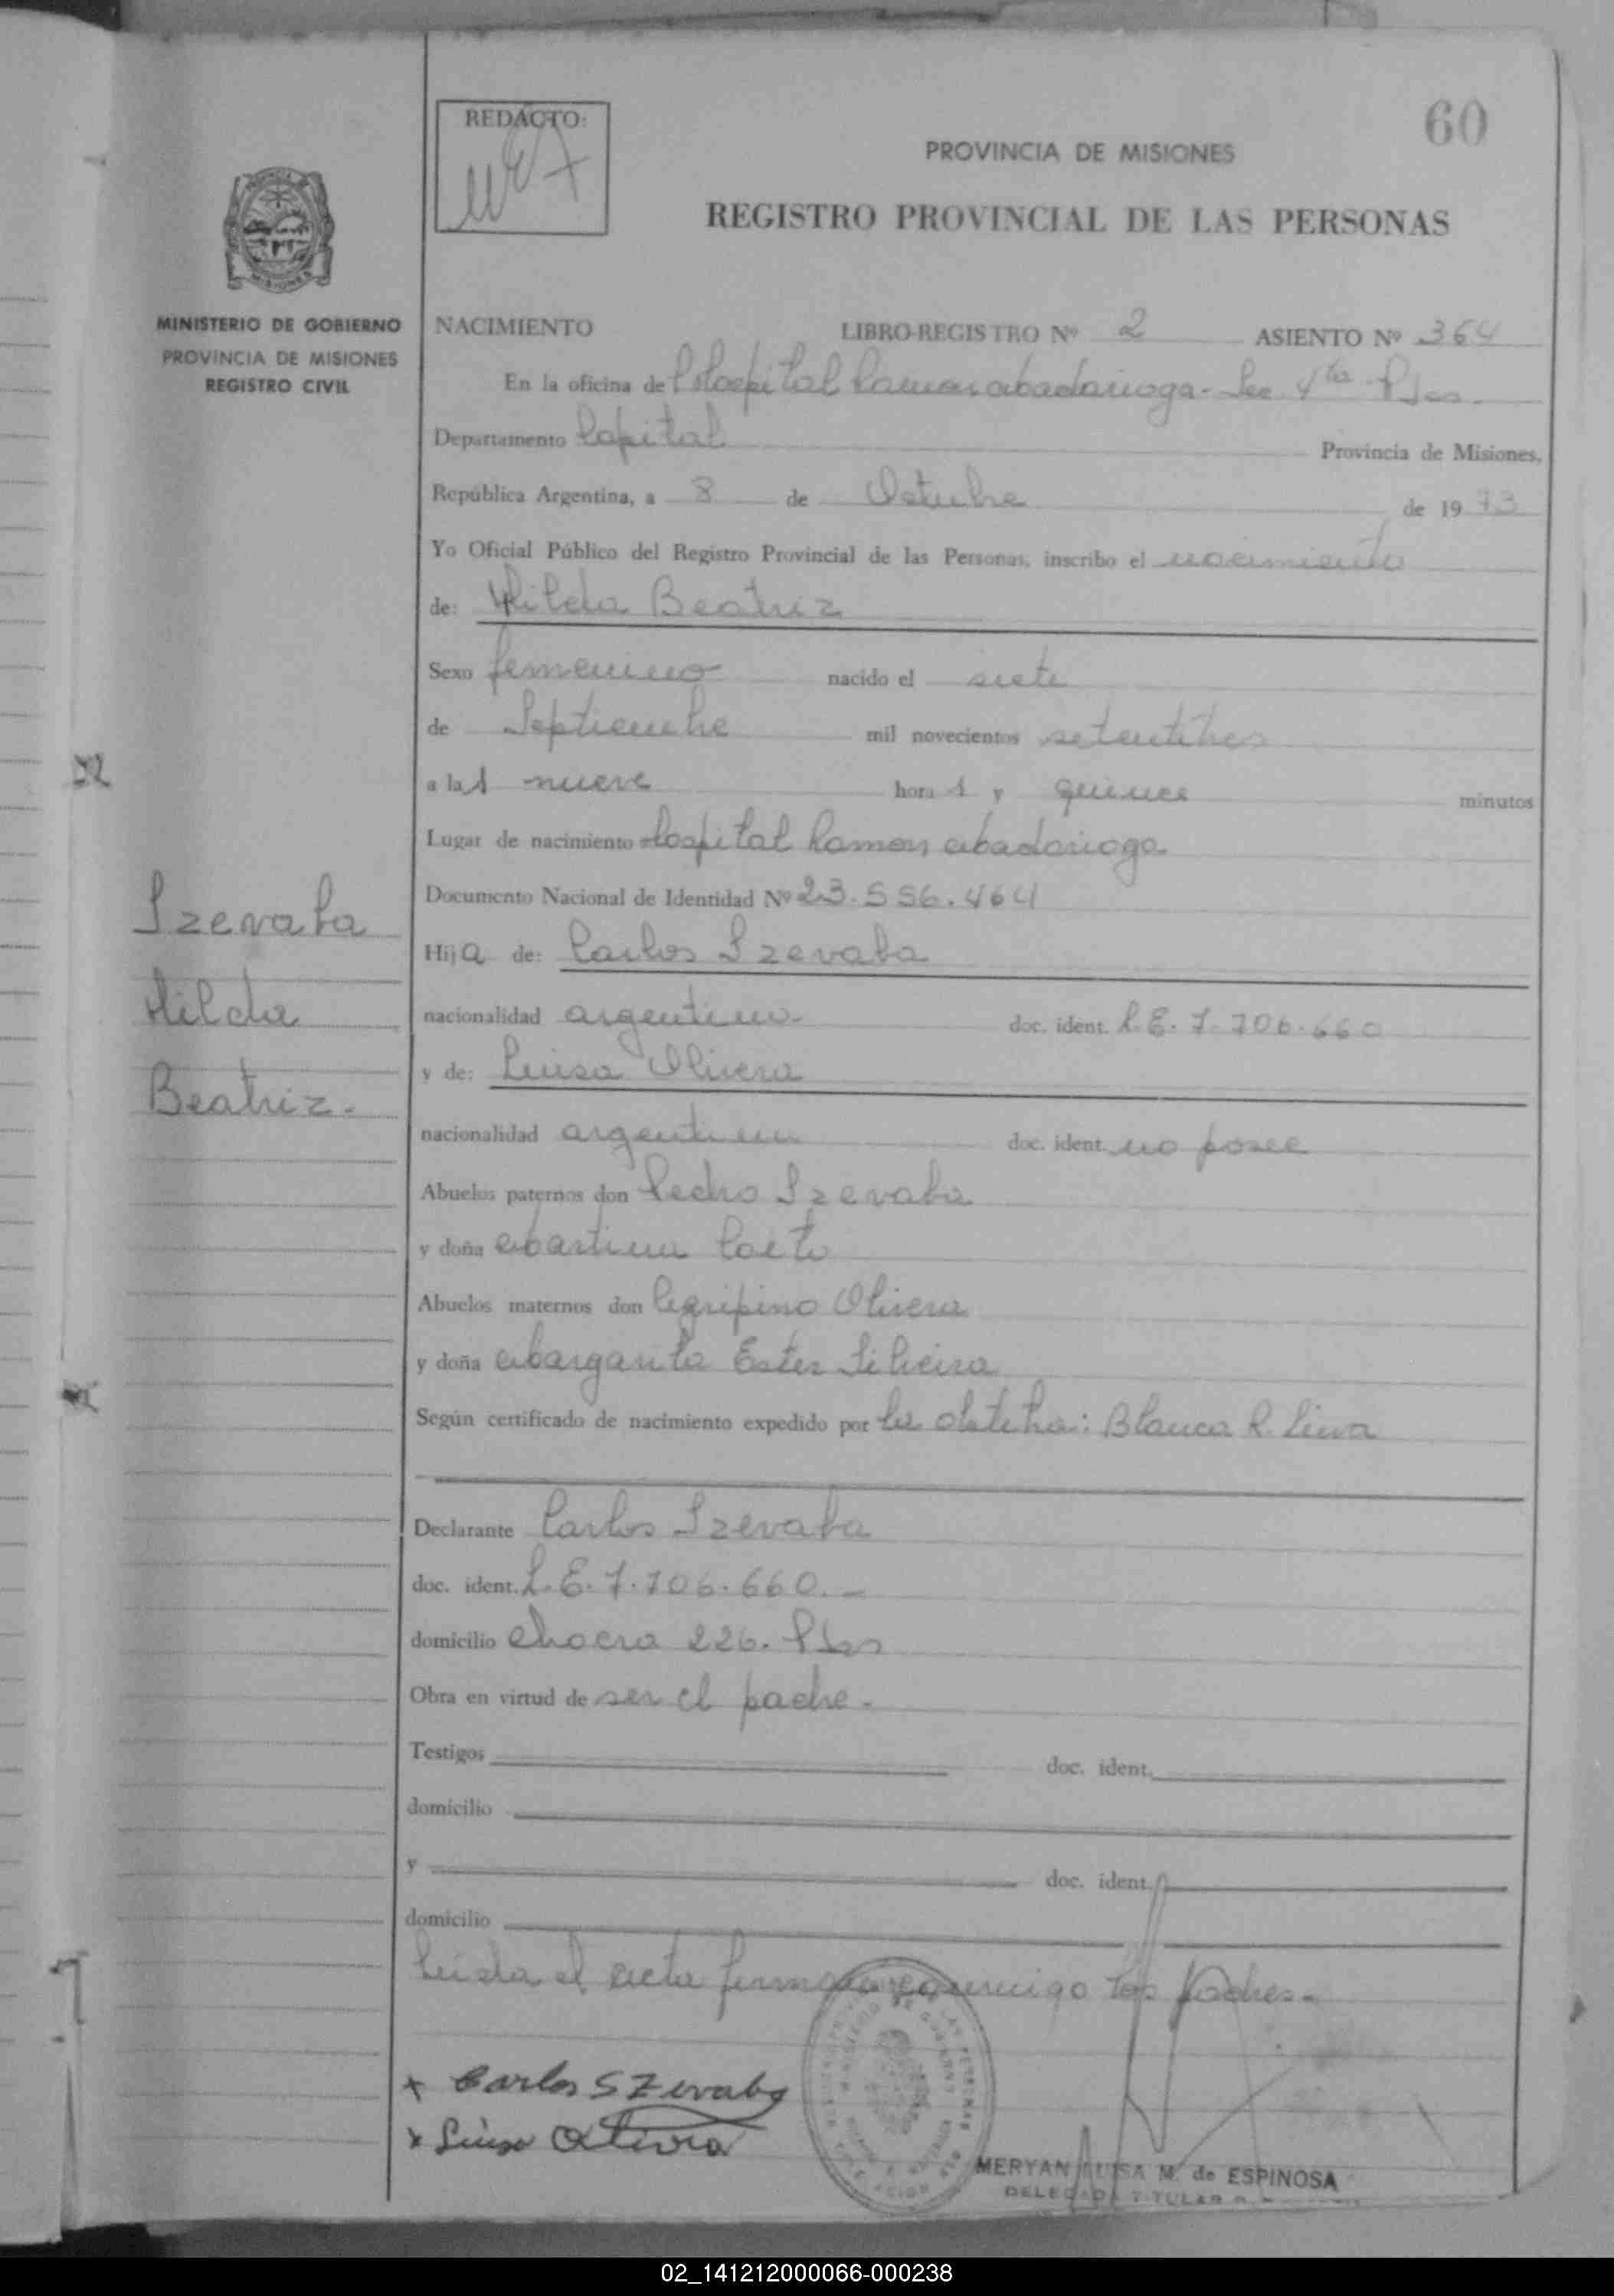 60
REDACTO:
PROVINCIA DE MISIONES
REGISTRO PROVINCIAL DE LAS PERSONAS
MISIONES
MINISTERIO DE GOBIERNO
PROVINCIA DE MISIONES
REGISTRO CIVIL
NACIMIENTO LIBRO-REGISTRO Nº 2 ASIENTO Nº 364
En la oficina de Hospital Ramon Madariaga - Sec 4ta - Pdas.
Departamento Capital Provincia de Misiones,
República Argentina, a 8 de Octubre de 1973
Yo Oficial Público del Registro Provincial de las Personas, inscribo el nacimiento
de: Hilda Beatriz
Sexo femenino nacido el siete
de Septiembre mil novecientos setentitres
a las nueve horas y quince minutos
Lugar de nacimiento Hospital Ramon Madariaga
Documento Nacional de Identidad Nº 23.556.464
Szevaba
Hilda
Beatriz.-
Hija de: Carlos Szevaba
nacionalidad argentino- doc. ident. L.E. 7.706.660
y de: Luisa Olivera
nacionalidad argentina doc. ident. no posee
Abuelos paternos don Pedro Szevaba
y doña Martina
Abuelos maternos don Agripino Olivera
y doña Margarita Ester Silveira
Según certificado de nacimiento expedido por la obstetra: Blanca R.
Declarante Carlos Szevaba
doc. ident. L.E. 7.706.660.-
domicilio Chacra 226. Pdas
Obra en virtud de ser el padre.-
Testigos doc. ident.
domicilio
y doc. ident.
domicilio
Leida el acta firman conmigo los padres.-
x Carlos Szevaba
x Luisa Olivera
MERYAN LUISA M. de ESPINOSA
DELEGADA TITULAR
02_141212000066-000238